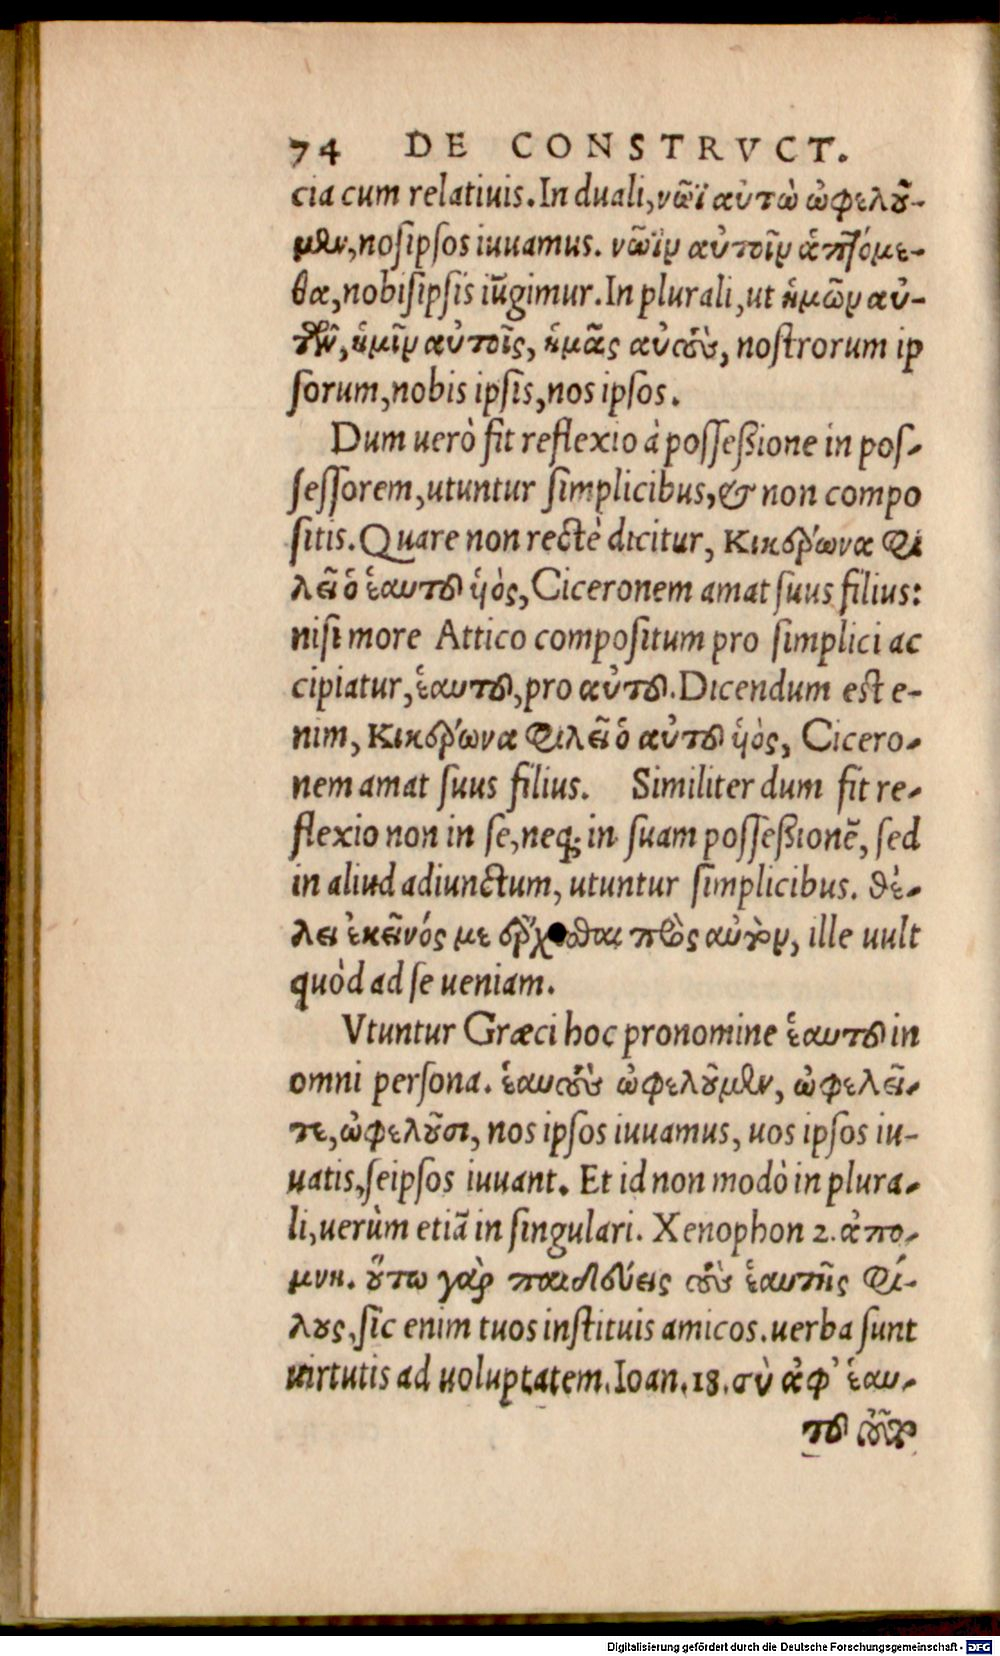 74 DE CONSTRVCT.
cia cum relatiuis. In duali, νῶϊ αὐτὼ ὠφελοῦ-
μεν, nosipsos iuuamus. νῶϊν αὐτοῖν ἁπτόμε-
θα, nobisipsis iūgimur. In plurali, ut ἡμῶν αὐ-
τῶν, ἡμῖν αὐτοῖς, ἡμᾶς αὐτοὺς, nostrorum ip
sorum, nobis ipsis, nos ipsos.
Dum uerò fit reflexio à possessione in pos-
sessorem, utuntur simplicibus, & non compo
sitis. Quare non rectè dicitur, Κικερωνα φι
λεῖ ὁ ἑαυτοῦ ὑὸς, Ciceronem amat suus filius:
nisi more Attico compositum pro simplici ac
cipiatur, ἑαυτοῦ, pro αὐτοῦ. Dicendum est e-
nim, Κικέρωνα φιλεῖ ὁ αὐτοῦ ὑὸς, Cicero-
nem amat suus filius. Similiter dum fit re-
flexio non in se, neq; in suam possessionē, sed
in aliud adiunctum, utuntur simplicibus. θέ-
λει ἐκεῖνός με ἔρχεσθαι πρὸς αὐτὸν, ille uult
quòd ad se ueniam.
Vtuntur Græci hoc pronomine ἑαυτοῦ in
omni persona. ἑαυτοὺς ὠφελοῦμεν, ὠφελεῖ-
τε, ὠφελοῦσι, nos ipsos iuuamus, uos ipsos iu-
uatis, seipsos iuuant. Et id non modò in plura-
li, uerùm etiā in singulari. Xenophon 2. ἀπο-
μνη. οὕτω γὰρ παιδεύεις τοὺς ἑαυτῆς φί-
λους, sic enim tuos instituis amicos. uerba sunt
uirtutis ad uoluptatem. Ioan. 18. σὺ ἀφ' ἑαυ-
τοῦ τοῦτο
Digitalisierung gefördert durch die Deutsche Forschungsgemeinschaft - DFG